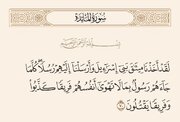 سُورَةُ المَائِدَةِ
بِسْمِ اللَّهِ الرَّحْمَٰنِ الرَّحِيمِ
لَقَدْ أَخَذْنَا مِيثَٰقَ بَنِىٓ إِسْرَٰٓءِيلَ وَأَرْسَلْنَآ إِلَيْهِمْ رُسُلًا كُلَّمَا
جَآءَهُمْ رَسُولٌۢ بِمَا لَا تَهْوَىٰٓ أَنفُسُهُمْ فَرِيقًا كَذَّبُوا۟
وَفَرِيقًا يَقْتُلُونَ